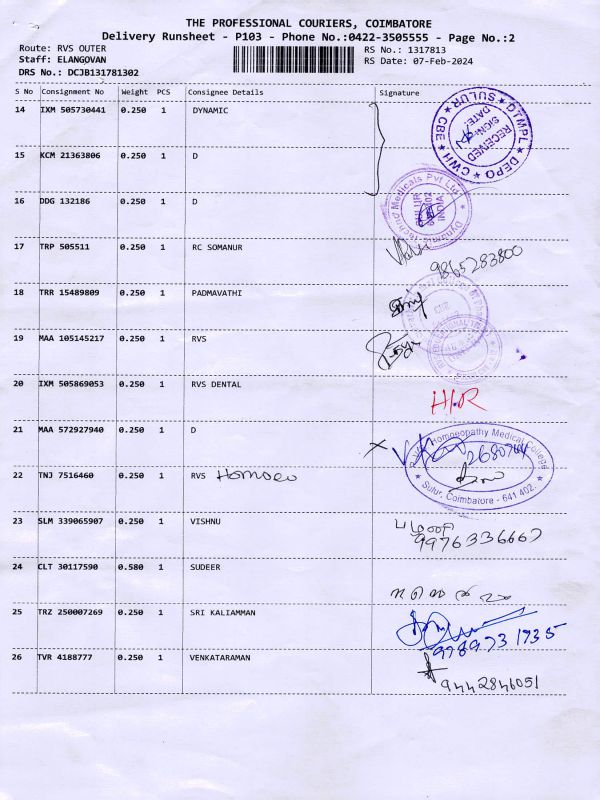 THE PROFESSIONAL COURIERS, COIMBATORE
Delivery Runsheet - P103 - Phone No.:0422-3505555 - Page No.:2
Route: RVS OUTER
RS No.: 1317813
Staff: ELANGOVAN
RS Date: 07-Feb-2024
DRS No.: DCJB131781302
S No Consignment No Weight PCS Consignee Details Signature
14 IXM 505730441 0.250 1 DYNAMIC
SULUR ★ DTMPL ★ DEPO ★ CWH ★ CBE
RECEIVED
SIGN:
DATE:
15 KCM 21363806 0.250 1 D
16 DDG 132186 0.250 1 D
Medicals Pvt Ltd
SULUR
INDIA
17 TRP 505511 0.250 1 RC SOMANUR
9865283800
18 TRR 15489809 0.250 1 PADMAVATHI
19 MAA 105145217 0.250 1 RVS
20 IXM 505869053 0.250 1 RVS DENTAL
H.R
21 MAA 572927940 0.250 1 D
Homoeopathy Medical College
Sulur, Coimbatore - 641 402.
22 TNJ 7516460 0.250 1 RVS Homoeo
23 SLM 339065907 0.250 1 VISHNU
24 CLT 30117590 0.580 1 SUDEER
25 TRZ 250007269 0.250 1 SRI KALIAMMAN
9789731735
26 TVR 4188777 0.250 1 VENKATARAMAN
9442846051